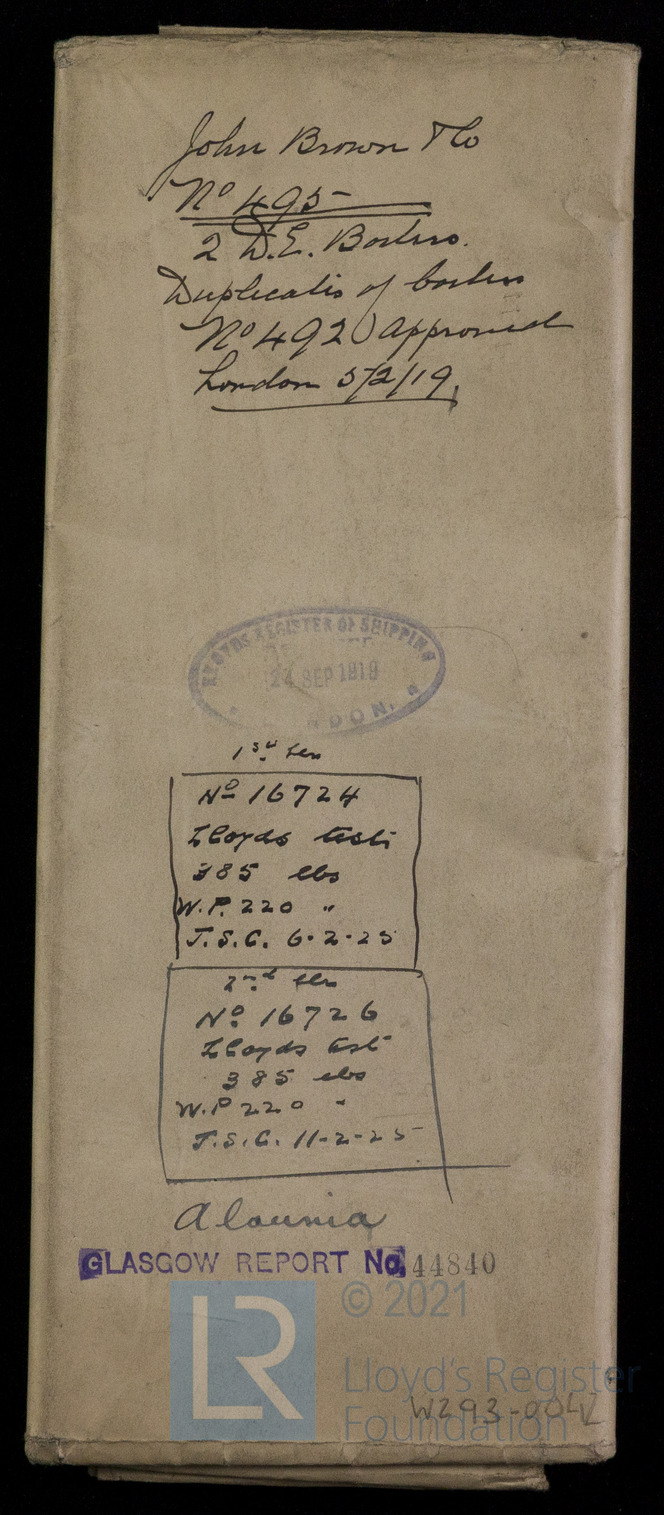 John Brown & Co
No 495
2 D.E. Boilers.
Duplicates of boilers
No 492 approved
London 5/2/19.
LLOYDS REGISTER OF SHIPPING
24 SEP 1919
LONDON.
1st blr
No 16724
Lloyds test
385 lbs
W.P. 220 "
J.S.C. 6-2-25
2nd blr
No. 16726
Lloyds test
385 lbs
W.P 220 "
J.S.C. 11-2-25
Alaunia
GLASGOW REPORT No. 44840
© 2021
LR
Lloyd's Register
Foundation
W293-004